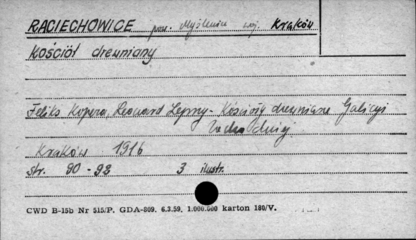 RACIECHOWICE pow. Myślenice woj. Kraków
Kościół drewniany
Feliks Kopera, Leonard Lepszy - Kościoły drewniane Galicyi
Zachodniej
Kraków 1916
str. 90-93 3 ilustr.
CWD B-15b Nr 515/P. GDA-809. 6.3.59. 1.000.000 karton 180/V.